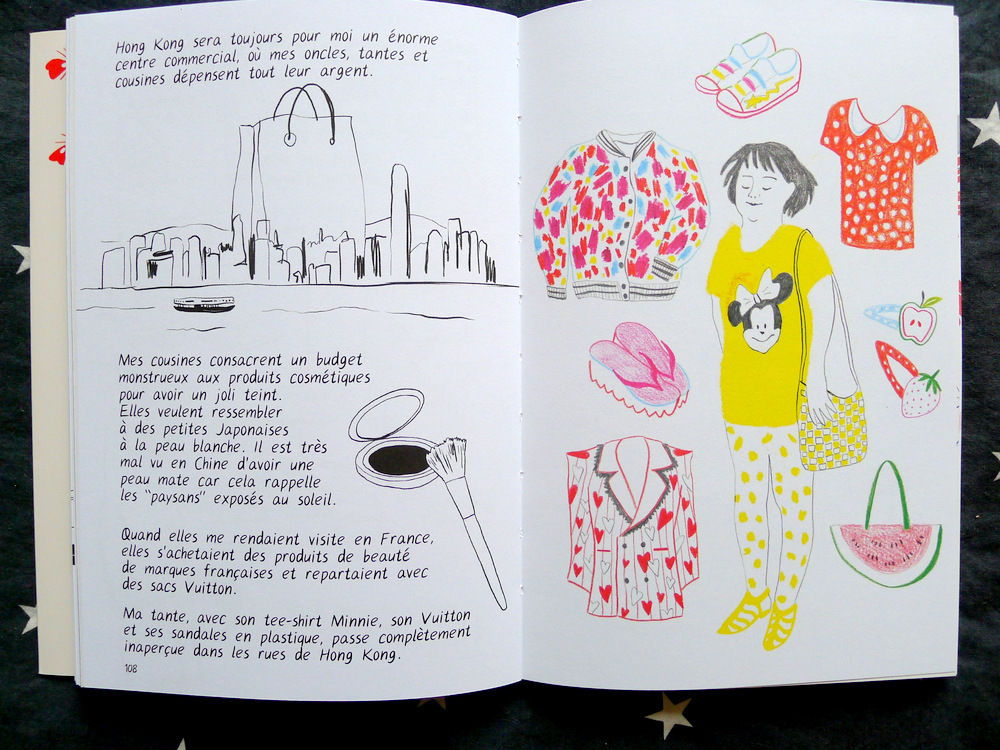 Hong Kong sera toujours pour moi un énorme
centre commercial, où mes oncles, tantes et
cousines dépensent tout leur argent.
Mes cousines consacrent un budget
monstrueux aux produits cosmétiques
pour avoir un joli teint.
Elles veulent ressembler
à des petites Japonaises
à la peau blanche. Il est très
mal vu en Chine d'avoir une
peau mate car cela rappelle
les "paysans" exposés au soleil.
Quand elles me rendaient visite en France,
elles s'achetaient des produits de beauté
de marques françaises et repartaient avec
des sacs Vuitton.
Ma tante, avec son tee-shirt Minnie, son Vuitton
et ses sandales en plastique, passe complètement
inaperçue dans les rues de Hong Kong.
108